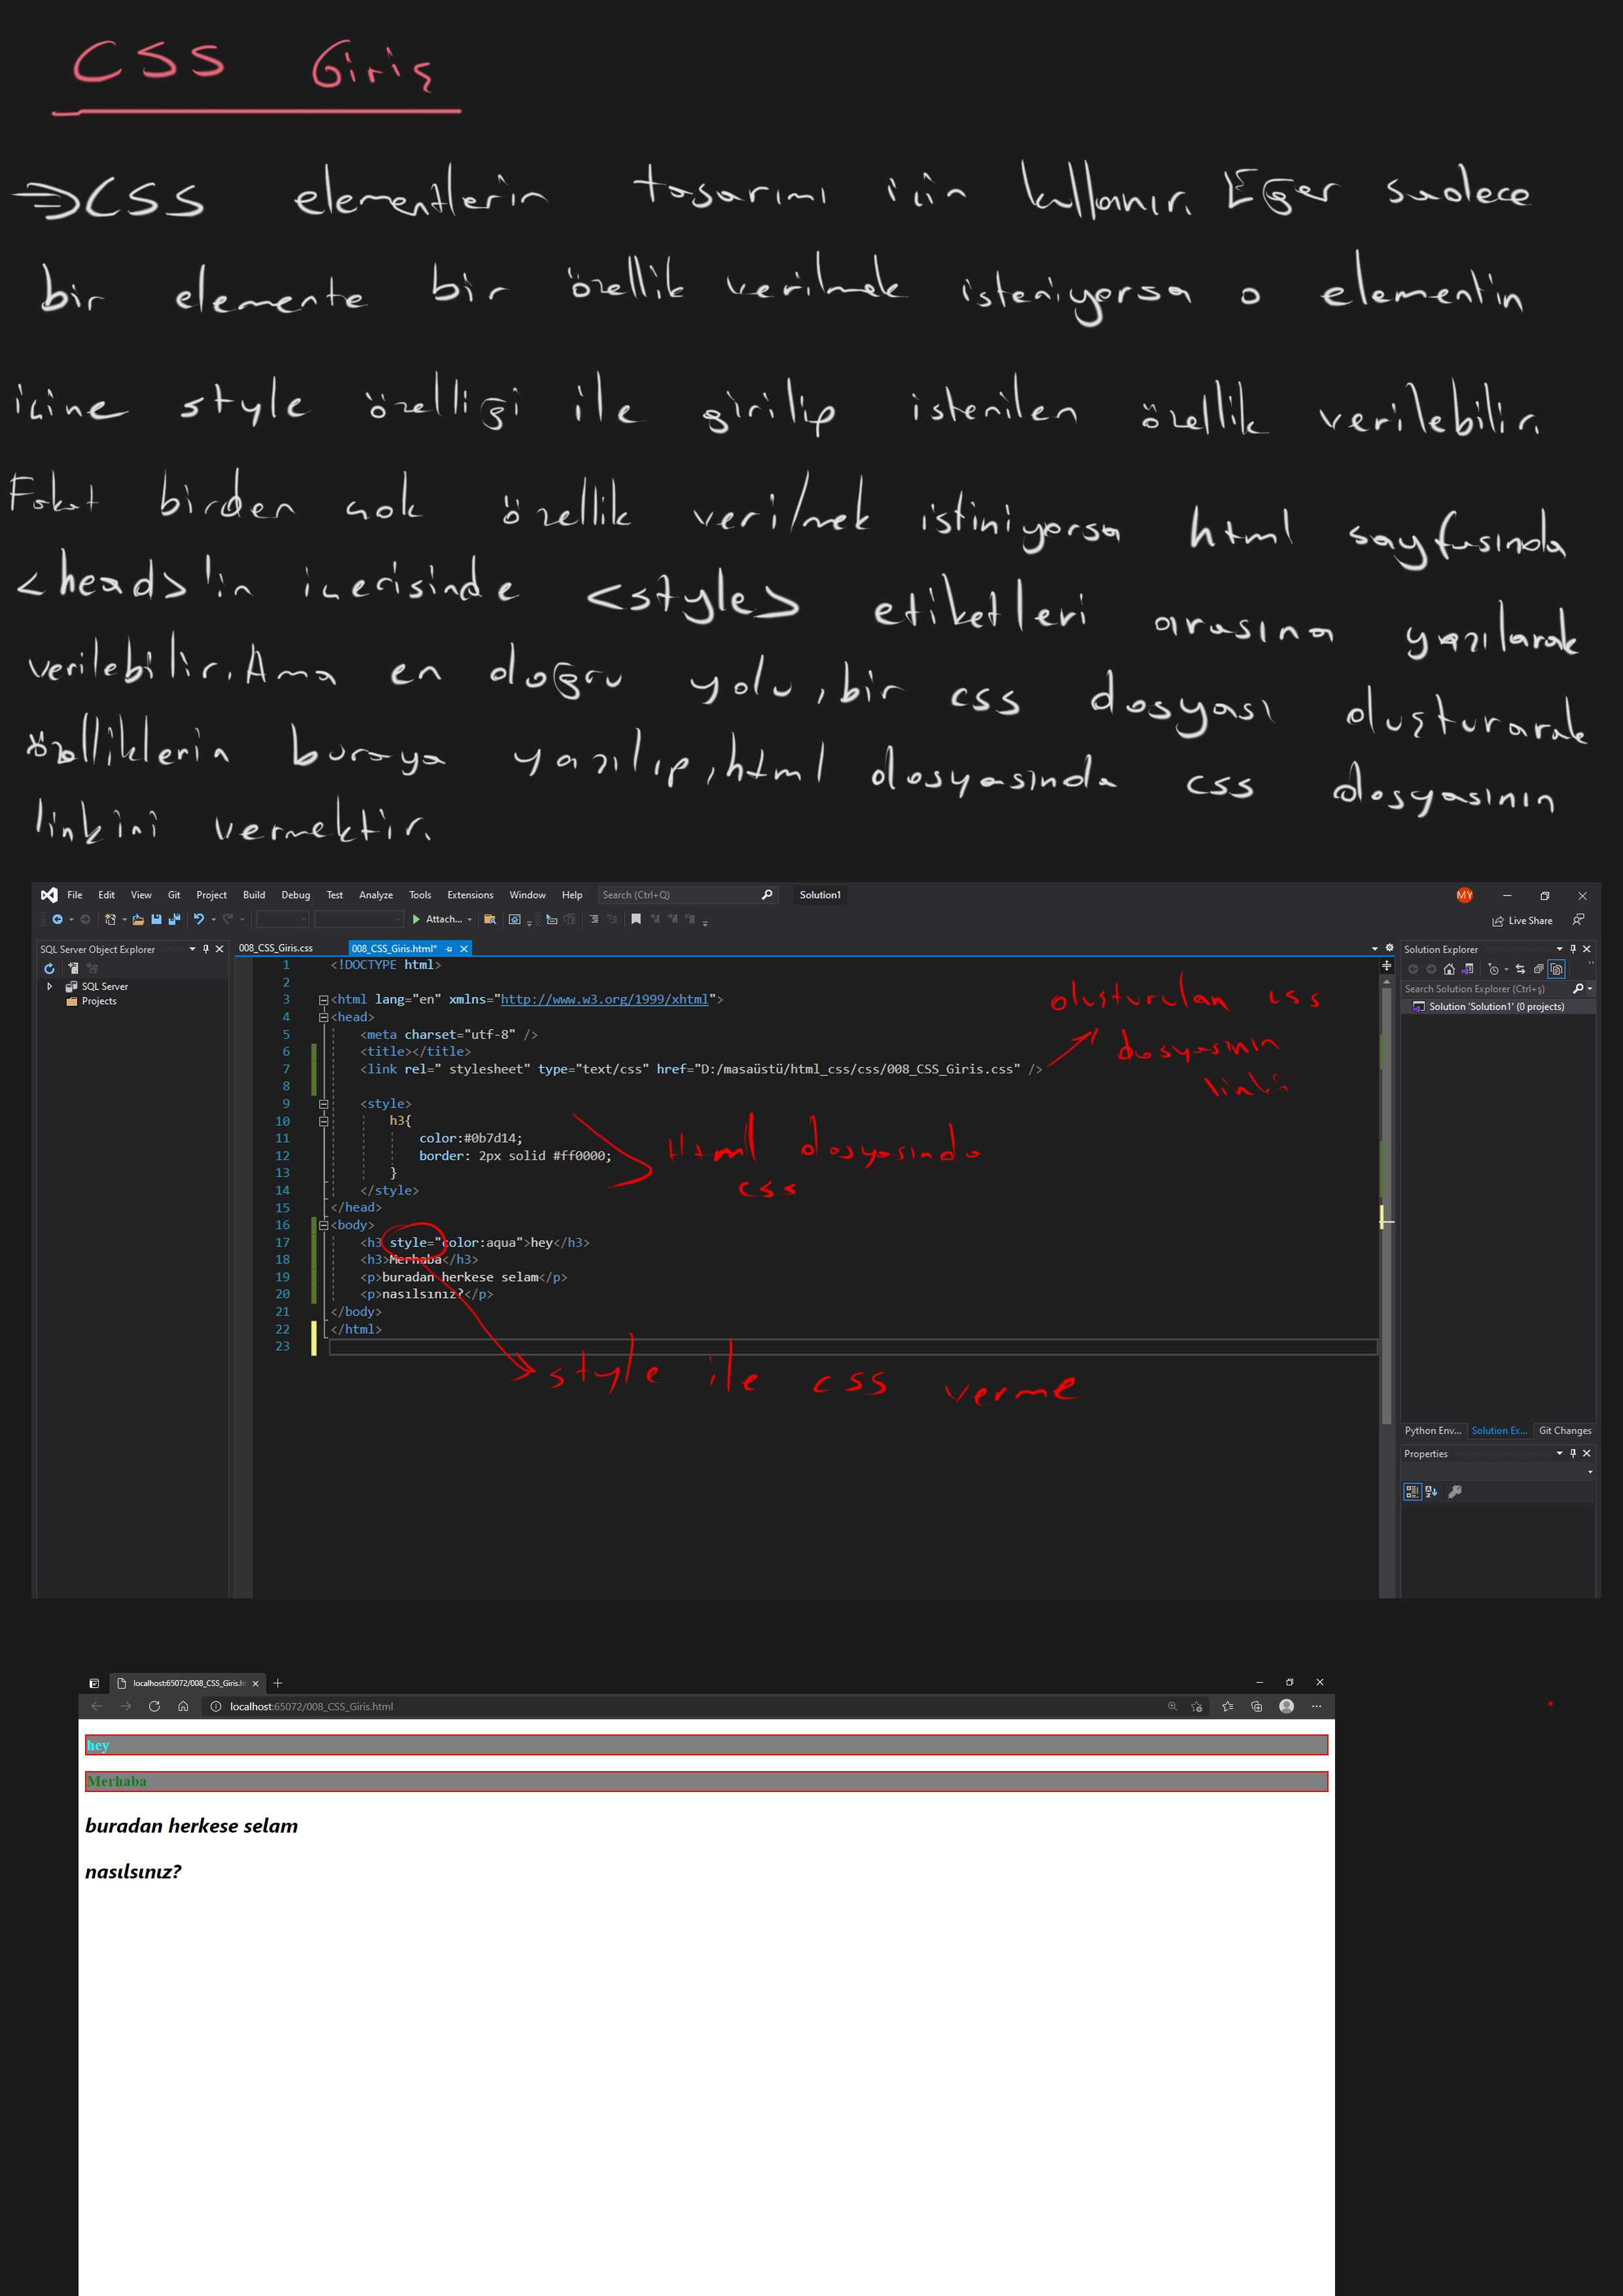 CSS Giriş
⇒CSS elementlerin tasarımı için kullanır. Eğer sadece
bir elemente bir özellik verilmek isteniyorsa o elementin
içine style özelliği ile girilip istenilen özellik verilebilir.
Fakat birden çok özellik verilmek istiniyorsa html sayfasında
<head>'in içerisinde <style> etiketleri arasına yazılarak
verilebilir. Ama en doğru yolu, bir css dosyası oluşturarak
özelliklerin buraya yazılıp, html dosyasında css dosyasının
linkini vermektir.
File Edit View Git Project Build Debug Test Analyze Tools Extensions Window Help Search (Ctrl+Q) Solution1 MY
Attach... Live Share
SQL Server Object Explorer
SQL Server
Projects
008_CSS_Giris.css 008_CSS_Giris.html*
1 <!DOCTYPE html>
2
3 <html lang="en" xmlns="http://www.w3.org/1999/xhtml">
4 <head>
5 <meta charset="utf-8" />
6 <title></title>
7 <link rel=" stylesheet" type="text/css" href="D:/masaüstü/html_css/css/008_CSS_Giris.css" />
8
9 <style>
10 h3{
11 color:#0b7d14;
12 border: 2px solid #ff0000;
13 }
14 </style>
15 </head>
16 <body>
17 <h3 style="color:aqua">hey</h3>
18 <h3>Merhaba</h3>
19 <p>buradan herkese selam</p>
20 <p>nasılsınız?</p>
21 </body>
22 </html>
23
oluşturulan css
dosyasının
linki
Html dosyasında
css
style ile css verme
Solution Explorer
Search Solution Explorer (Ctrl+ş)
Solution 'Solution1' (0 projects)
Python Env... Solution Ex... Git Changes
Properties
localhost:65072/008_CSS_Giris.ht
localhost:65072/008_CSS_Giris.html
hey
Merhaba
buradan herkese selam
nasılsınız?